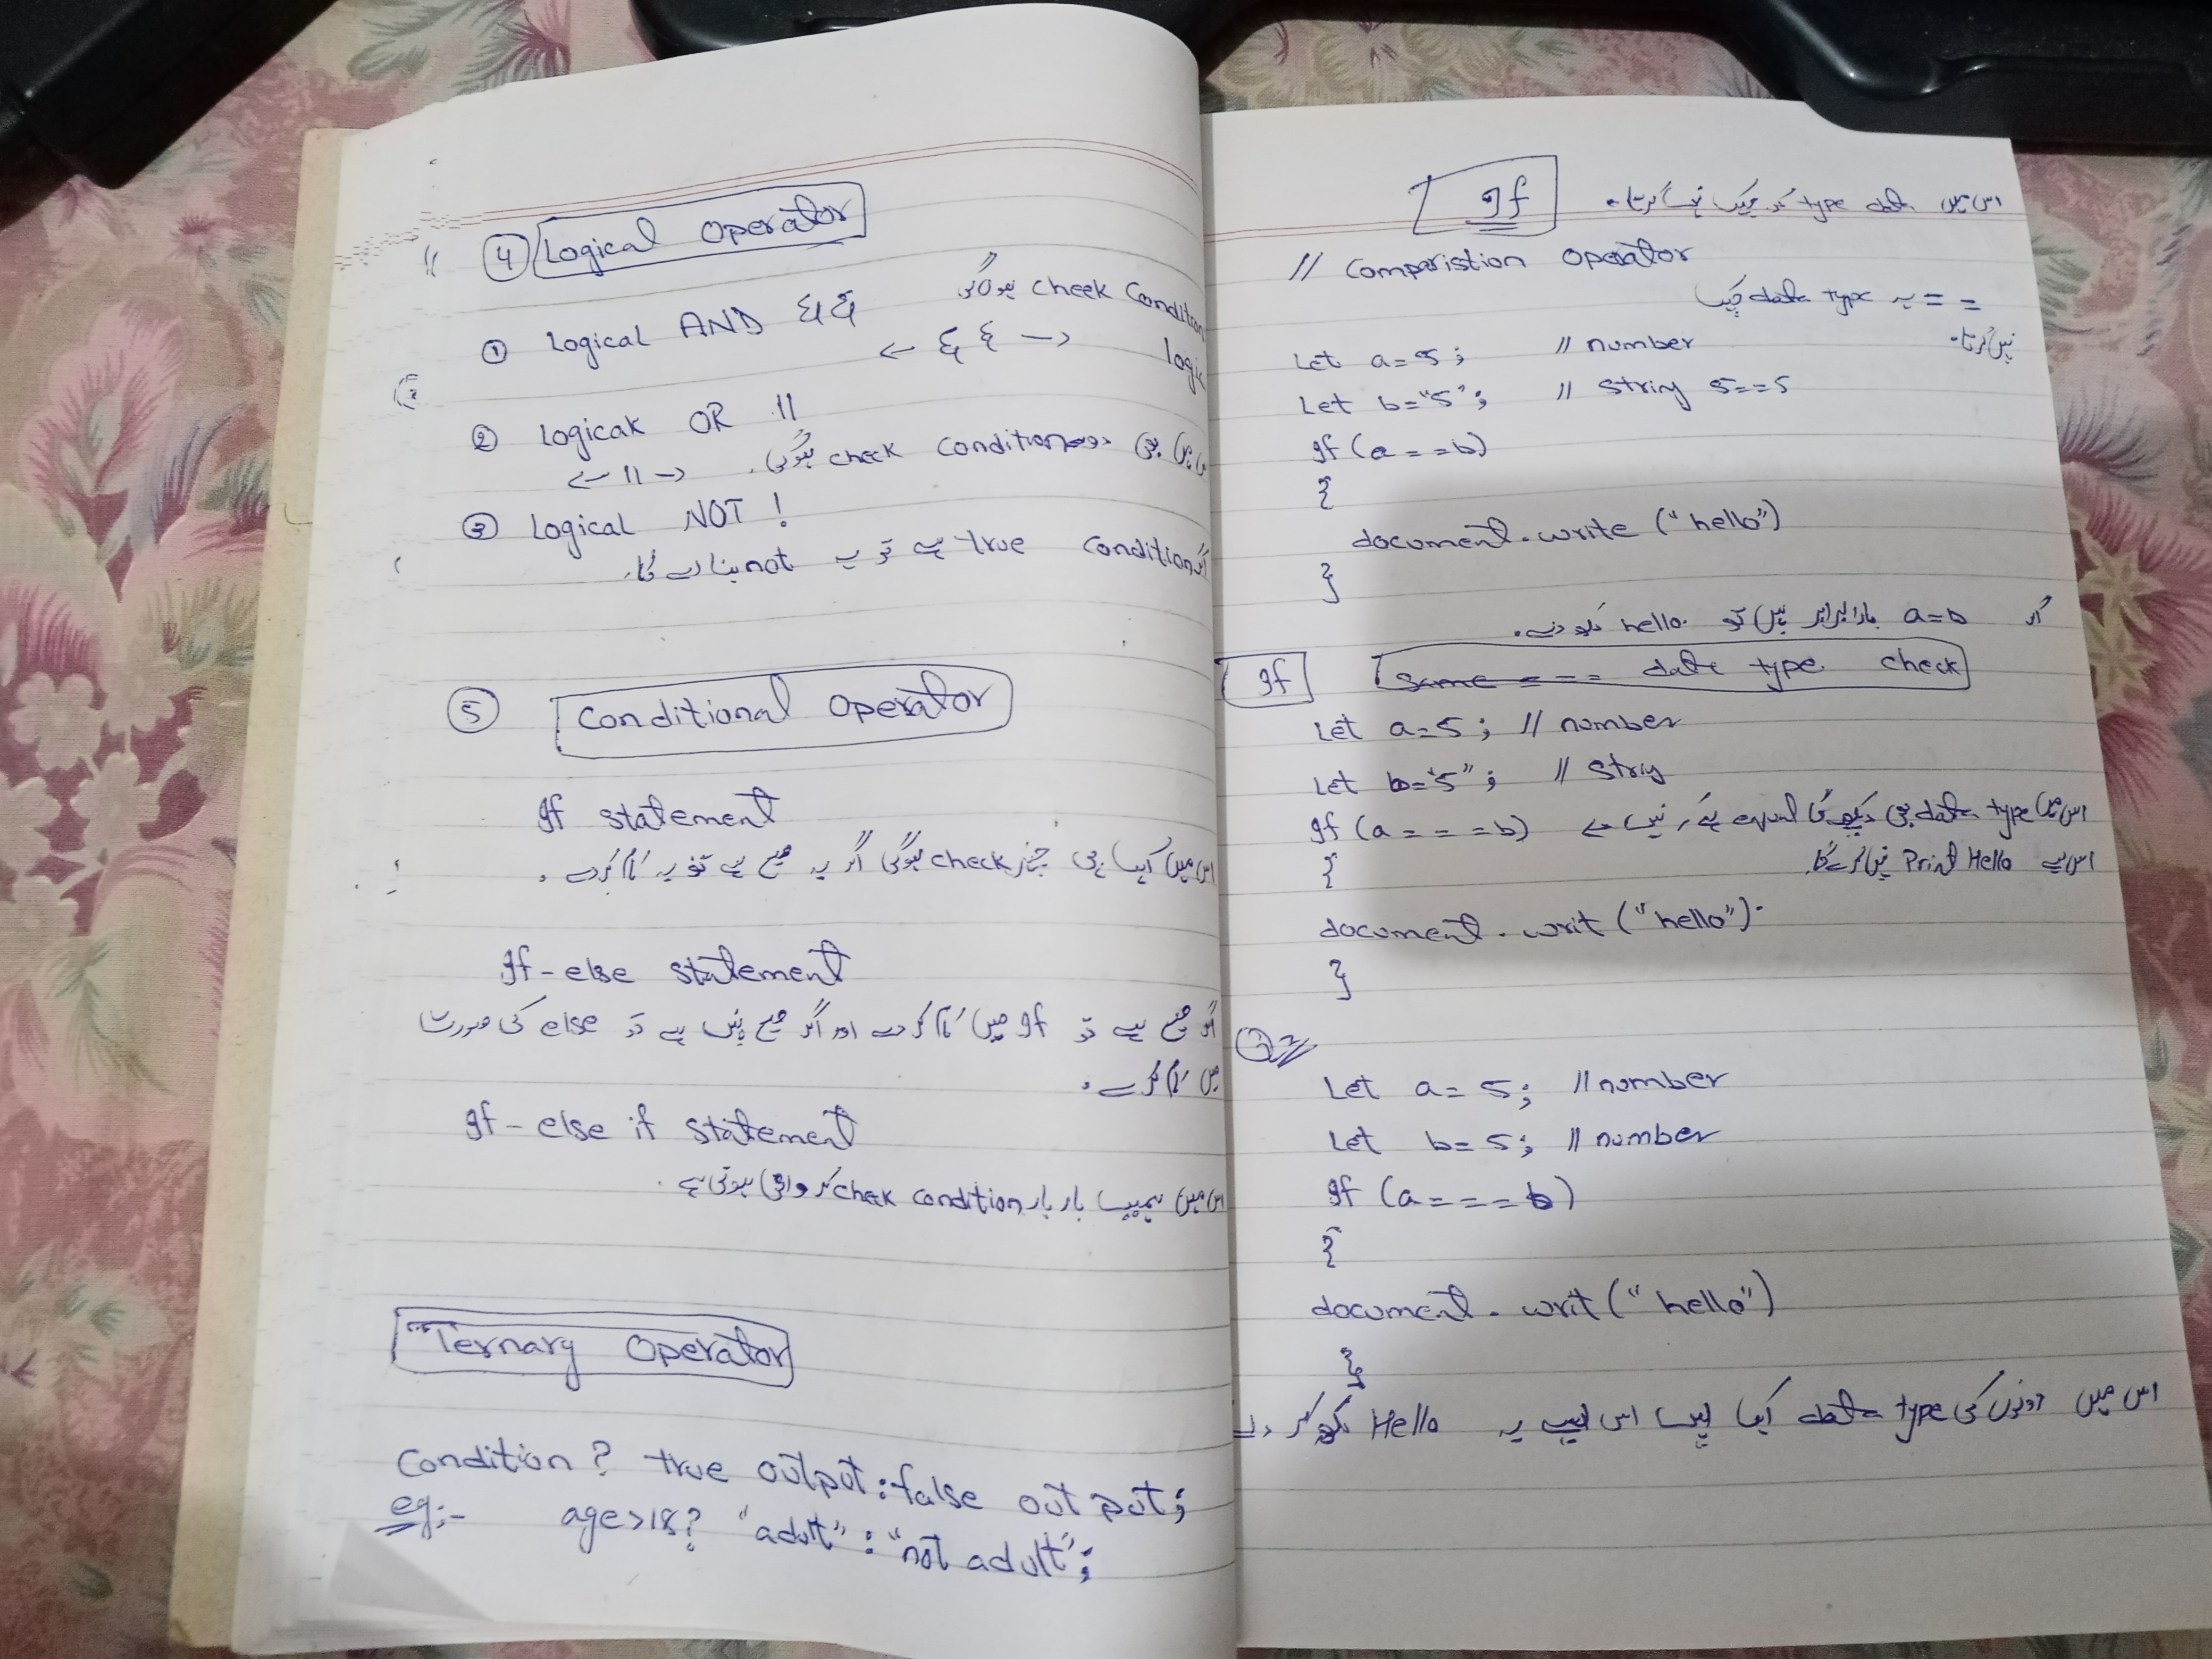 4 Logical Operator
① Logical AND &&
check condition ہوگی
← && →
logic
② Logicak OR ||
check condition ہوگی.
← || →
③ Logical NOT !
condition true ہے تو یہ not بنا دے گا.
⑤ Conditional Operator
If statement
اس میں ایک ہی چیز check ہوگی اگر یہ صیح ہے تو یہ کام کردے.
If-else statement
اگر صیح ہے تو If میں کام کردے اور اگر صیح نہیں ہے تو else کی صورت
میں کام کرے.
If-else if statement
اس میں ہمیں بار بار condition chek کروانی ہوتی ہے.
Ternary Operator
Condition? true output:false out put;
eg:- age>18? "adult" : "not adult";
If
اس میں data type کو چیک نہیں کرتا.
// Comparistion Operator
== یہ data type چیک
نہیں کرتا.
Let a=5; // number
Let b="5"; // String 5==5
If (a==b)
{
document.write ("hello")
}
اگر a=b برابر ہیں تو hello. لکھ دے.
If
same === date type check
Let a=5; // number
Let b="5"; // Striy
If (a===b) اس میں data type بھی دیکھے گا equal ہے کہ نہیں
{
اس لیے Print Hello نہیں کرے گا.
document.writ ("hello").
}
Let a= 5; // number
Let b= 5; // number
If (a===b)
{
document.writ("hello")
}
اس میں دونوں کی data type ایک ہیں اس لیے یہ Hello لکھ کر دے